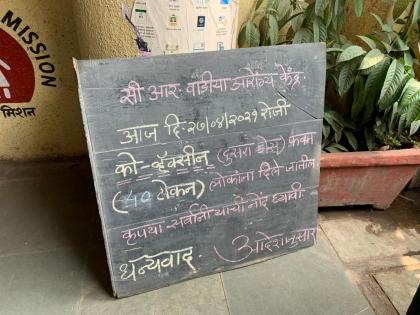 MISSION
मिशन
सी आर वाडीया आरोग्य केंद्र
आज दि-२७/०४/२०२१ रोजी
को-व्हॅक्सीन (दुसरा डोस) फक्त
(40 टोकन) लोकांना दिले जातील
कृपया सर्वांनी याची नोंद घ्यावी
धन्यवाद. आदेशानुसार